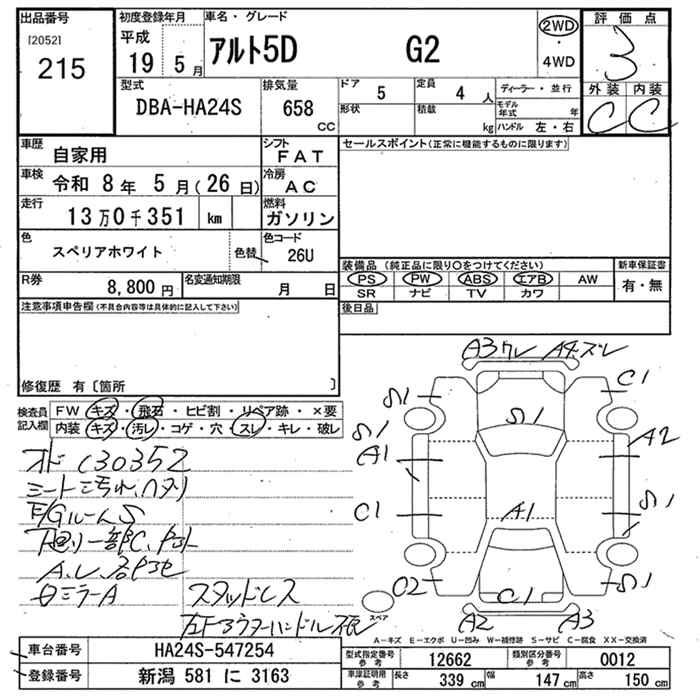 出品番号
[2052]
215
初度登録年月
平成
19 5月
車名・グレード
アルト5D G2
2WD
・
4WD
評価点
3
外装 内装
C C
型式
DBA-HA24S
排気量
658 CC
ドア 5
定員 4 人
形状
積載 kg
ディーラー・並行
モデル年式 年
ハンドル 左・右
車歴
自家用
シフト
FAT
車検
令和 8年 5月(26日)
冷房
AC
走行
13万0千351 km
燃料
ガソリン
色
スペリアホワイト
色替
色コード
26U
R券
8,800円
名変通知期限
月 日
セールスポイント(正常に機能するものに限ります)
装備品(純正品に限り○をつけてください)
新車保証書
PS PW ABS エアB AW
SR ナビ TV カワ
有・無
後日品
注意事項申告欄(不具合内容等は具体的に記入して下さい)
修復歴 有〔箇所 〕
検査員記入欄
FW キズ・飛石・ヒビ割・リペア跡・×要
内装 キズ・汚れ・コゲ・穴・スレ・キレ・破レ
オド 130352
シート汚れ、ヘタリ
F/GルームS
下廻リ一部C、
ミラーA
スタッドレス
A3 ワレ A4 ズレ
C1
S1
S1
S1
A1
A2
C1
A1
S1
C2
C1
S1
A2 A3
スペア
A-キズ E-エクボ U-凹み W-補修跡 S-サビ C-腐食 XX-交換済
車台番号
HA24S-547254
登録番号
新潟 581 に 3163
型式指定番号
参考
12662
類別区分番号
参考
0012
車庫証明用
参考
長さ 339 cm 幅 147 cm 高さ 150 cm